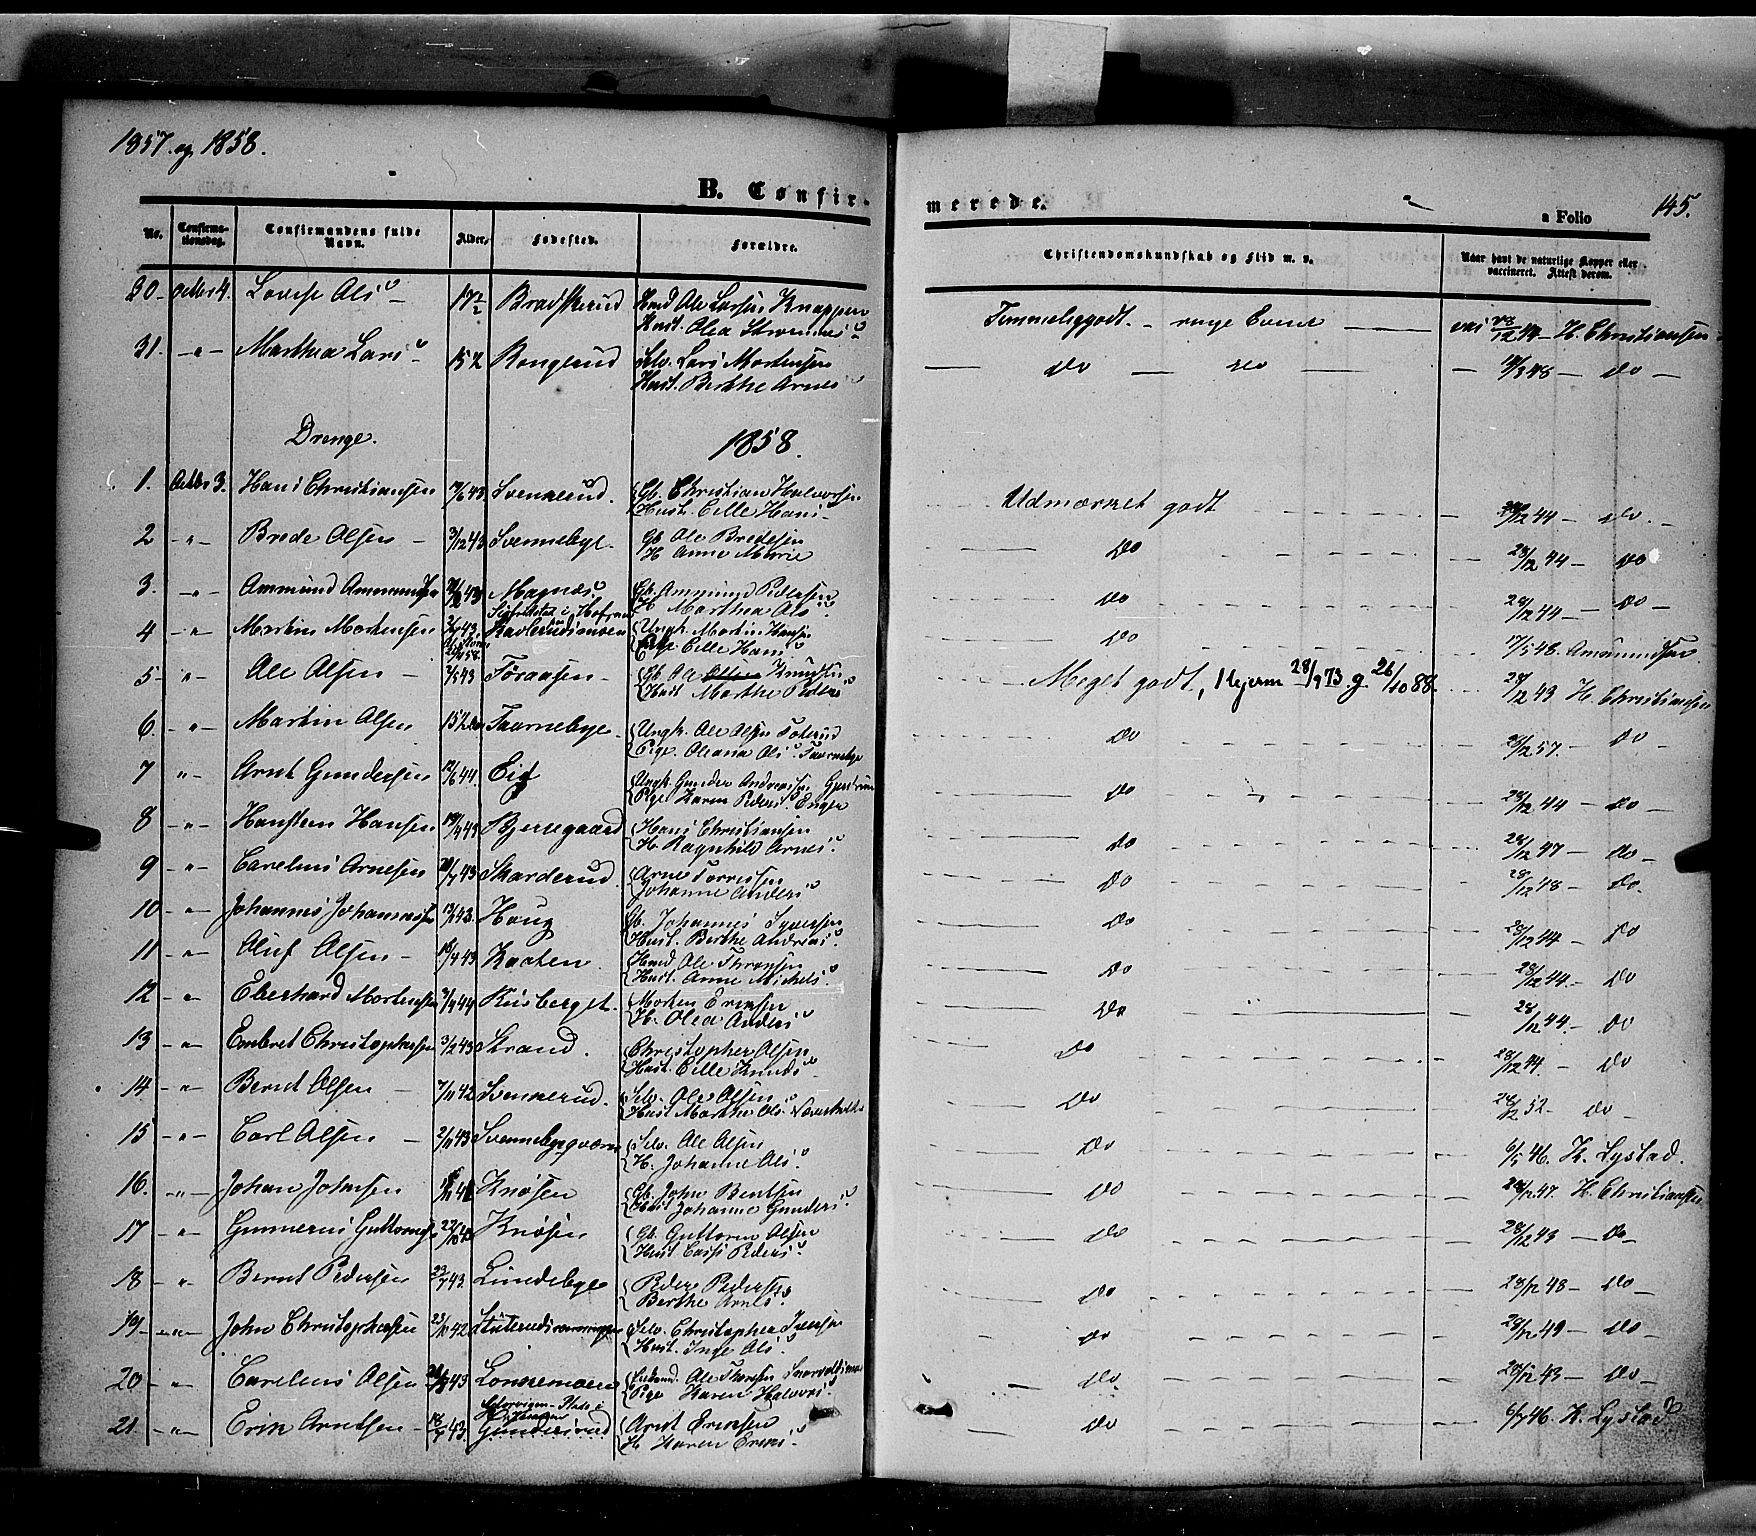 1857 og 1858.
145.
B. Confir-
merede.
a Folio
No.
Confirmationsdag.
Confirmandens fulde Navn.
Alder.
Fødested.
Forældre.
Christendomskundskab og Flid m. v.
Naar havt de naturlige Kopper eller vaccineret. Attest derom.
30 Octbr 4. Lovise Ols 17½ Bradskerud Huusmd Ole Larsen Knappen
Hust. Olea
Temmelig godt. vac 28/12 44 H. Christiansen
31. -"- Marthea Lars 15½ Ronglrud Selv. Lars Mortensen
Hust. Berthe Arnes
do do /8 48 do
Drenge. 1858.
1. Octbr 3. Hans Christiansen /6 43 Svenkerud. Gb. Christian Halvorsen
Hust. Eille Hans
Udmærket godt 28/12 44 do.
2 -"- Brede Olsen 3/12 43 Svennebye. Gb Ole Bredesen
H. Anne Marie
Do 28/12 44 do
3. -"- Ammund Ammundsen 43 Magnæs Gb. Ammund Pedersen
H. Marthea Ols
do 28/12 44 do
4 -"- Martin Mortensen 43. Ungk. Martin Hansen
Pige Eille Hans
do 17/5 48. Ammundsen
5 -"- Ole Olsen 2/5 43 Føraasen Gb. Ole Knudsen
Hust Marthe Peders
Meget godt, 28/9 73 g 26/10 88. 28/12 43 H. Christiansen
6. -"- Martin Olsen 15½ Taarnebye Ungk. Ole Olsen
Pige. Oleana Ols. Taarnebye
do 28/12 57. do
7 " Arnt Gundersen 12/6 44. Eid Ungk. Gunder Andreassen Gjestrum
Pige Karen Peders. Enger
do 28/12 44 do
8 -"- Hansteen Hansen 19/4 43 Bjerregaard Hans Christiansen
H. Ragnhild Arnes.
do 28/12 47 do
9 -"- Carelius Arnesen 20/7 43 Skarderud Arne Torresen
Johanne Anders
Do 28/12 48 do.
10 -"- Johannes Johannessen 13/ 43. Haug Gb. Johannes Syversen
Hust. Berthe Andreas.
do 28/12 44 do
11 -"- Oluf Olsen 43 Kaaten. Huusmd Ole Thronsen
Hust. Anne Michels.
do 28/12 44. do
12 -"- Eberhard Mortensen 3/4 44 Riisberget. Morten Ericsen
H. Olea Anders
do 28/12 44. do
13 -"- Embret Christophersen 3/2 43 Strand. Christopher Olsen
Hust. Eille Knuds
do 28/12 44. do
14 -"- Bernt Olsen 7/11 42 Svenkerud. Selv. Ole Olsen
Hust Marthe Ols. Næversholt
Do 28/12 52 do
15 -"- Carl Olsen 2/11 43 Svennebyeqværn Selv. Ole Olsen
H. Johanne Ols.
do 6/5 46. K. Lystad.
16. -"- Johan Johnsen Knøsen Gb. John Bentsen
Hust Johanne Gunders.
do 28/12 47. H. Christiansen
17 -"- Gunnerus Guttormsen 22/10 43 Knøsen Gb. Guttorm Olsen
Hust Peders.
do 28/12 43 do
18 -"- Bernt Pedersen 23/7 43. Lindebye Peder Pedersen
Berthe Arnes.
do 28/12 48 do
19 -"- John Christophersen 23/11 42 Selv. Christopher Iversen
Hust. Inge Ols.
do 28/12 49 do
20 -"- Carelius Olsen 43 Lonnemoen Enkemd. Ole Thoresen
Pige Karen Halvors.
do 28/12 43 do
21 -"- Erik Arntsen 18/7 43. Gundersrud Arnt Ericsen
H. Karen Erics.
do 6/7 46. K. Lystad